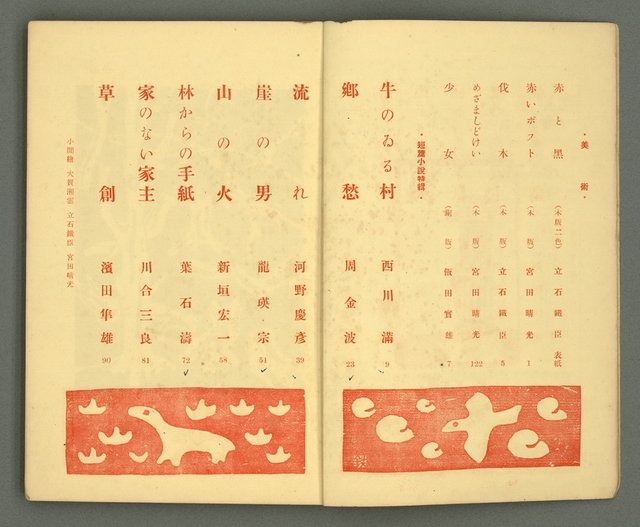 ・美術・
赤と黑（木版二色）立石鐵臣 表紙
赤いポスト（木版）宮田晴光 1
伐木（木版）立石鐵臣 5
めざましどけい（木版）宮田晴光 122
少女（銅版）飯田實雄 7
・短篇小說特輯・
牛のゐる村 西川滿 9
鄕愁 周金波 23
流れ 河野慶彥 39
崖の男 龍瑛宗 51
山の火 新垣宏一 58
林からの手紙 葉石濤 72
家のない家主 川合三良 81
草創 濱田隼雄 90
小間繪 大賀湘雲 立石鐵臣 宮田晴光